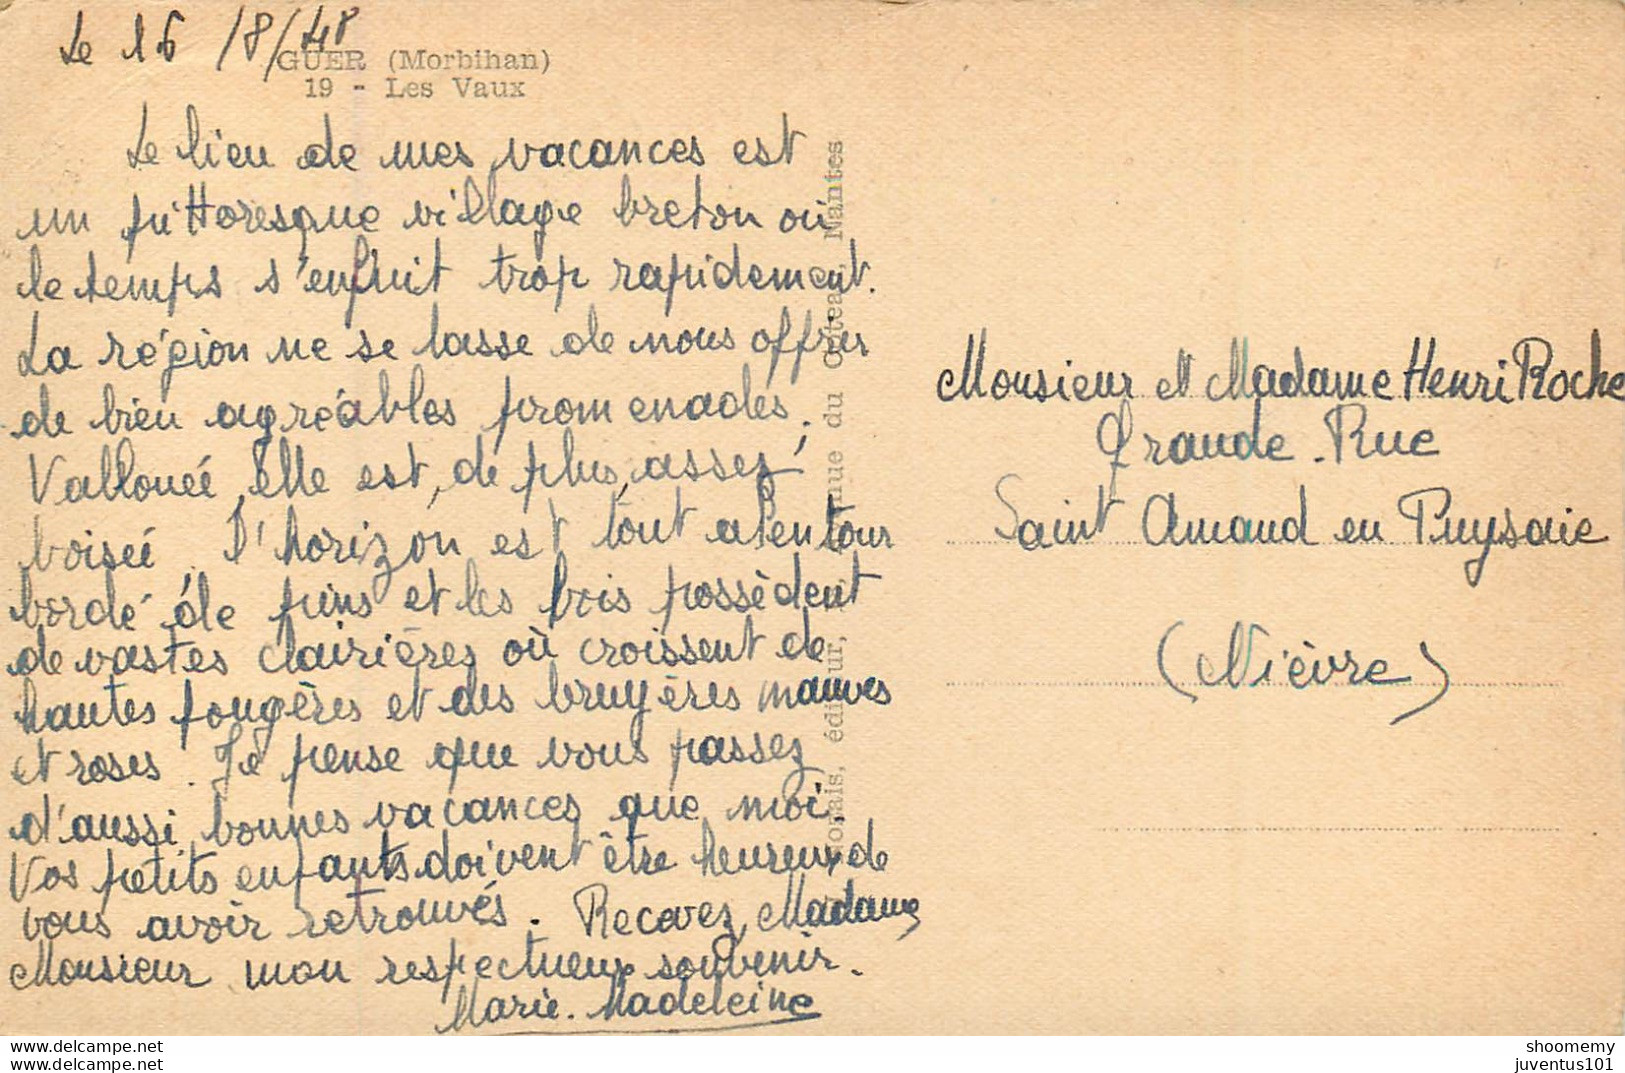 Le 16/8/48
GUER (Morbihan)
19 - Les Vaux
Le lieu de mes vacances est
un pittoresque village breton où
le temps s'enfuit trop rapidement.
La région ne se lasse de nous offrir
de bien agréables promenades.
Vallonée, elle est, de plus, assez
boisée. L'horizon est tout alentour
bordé de pins et les bois possèdent
de vastes clairières où croissent de
hautes fougères et des bruyères mauves
et roses. Je pense que vous passez
d'aussi bonnes vacances que moi
Vos petits enfants doivent être heureux de
vous avoir retrouvés. Recevez, Madame,
Monsieur mon respectueux souvenir.
Marie-Madeleine
éditeur, nue du Côteau, Nantes
Monsieur et Madame Henri Roche
Grande Rue
Saint Amand en Puysaie
(Nièvre)
www.delcampe.net
www.delcampe.net
shoomemy
juventus101